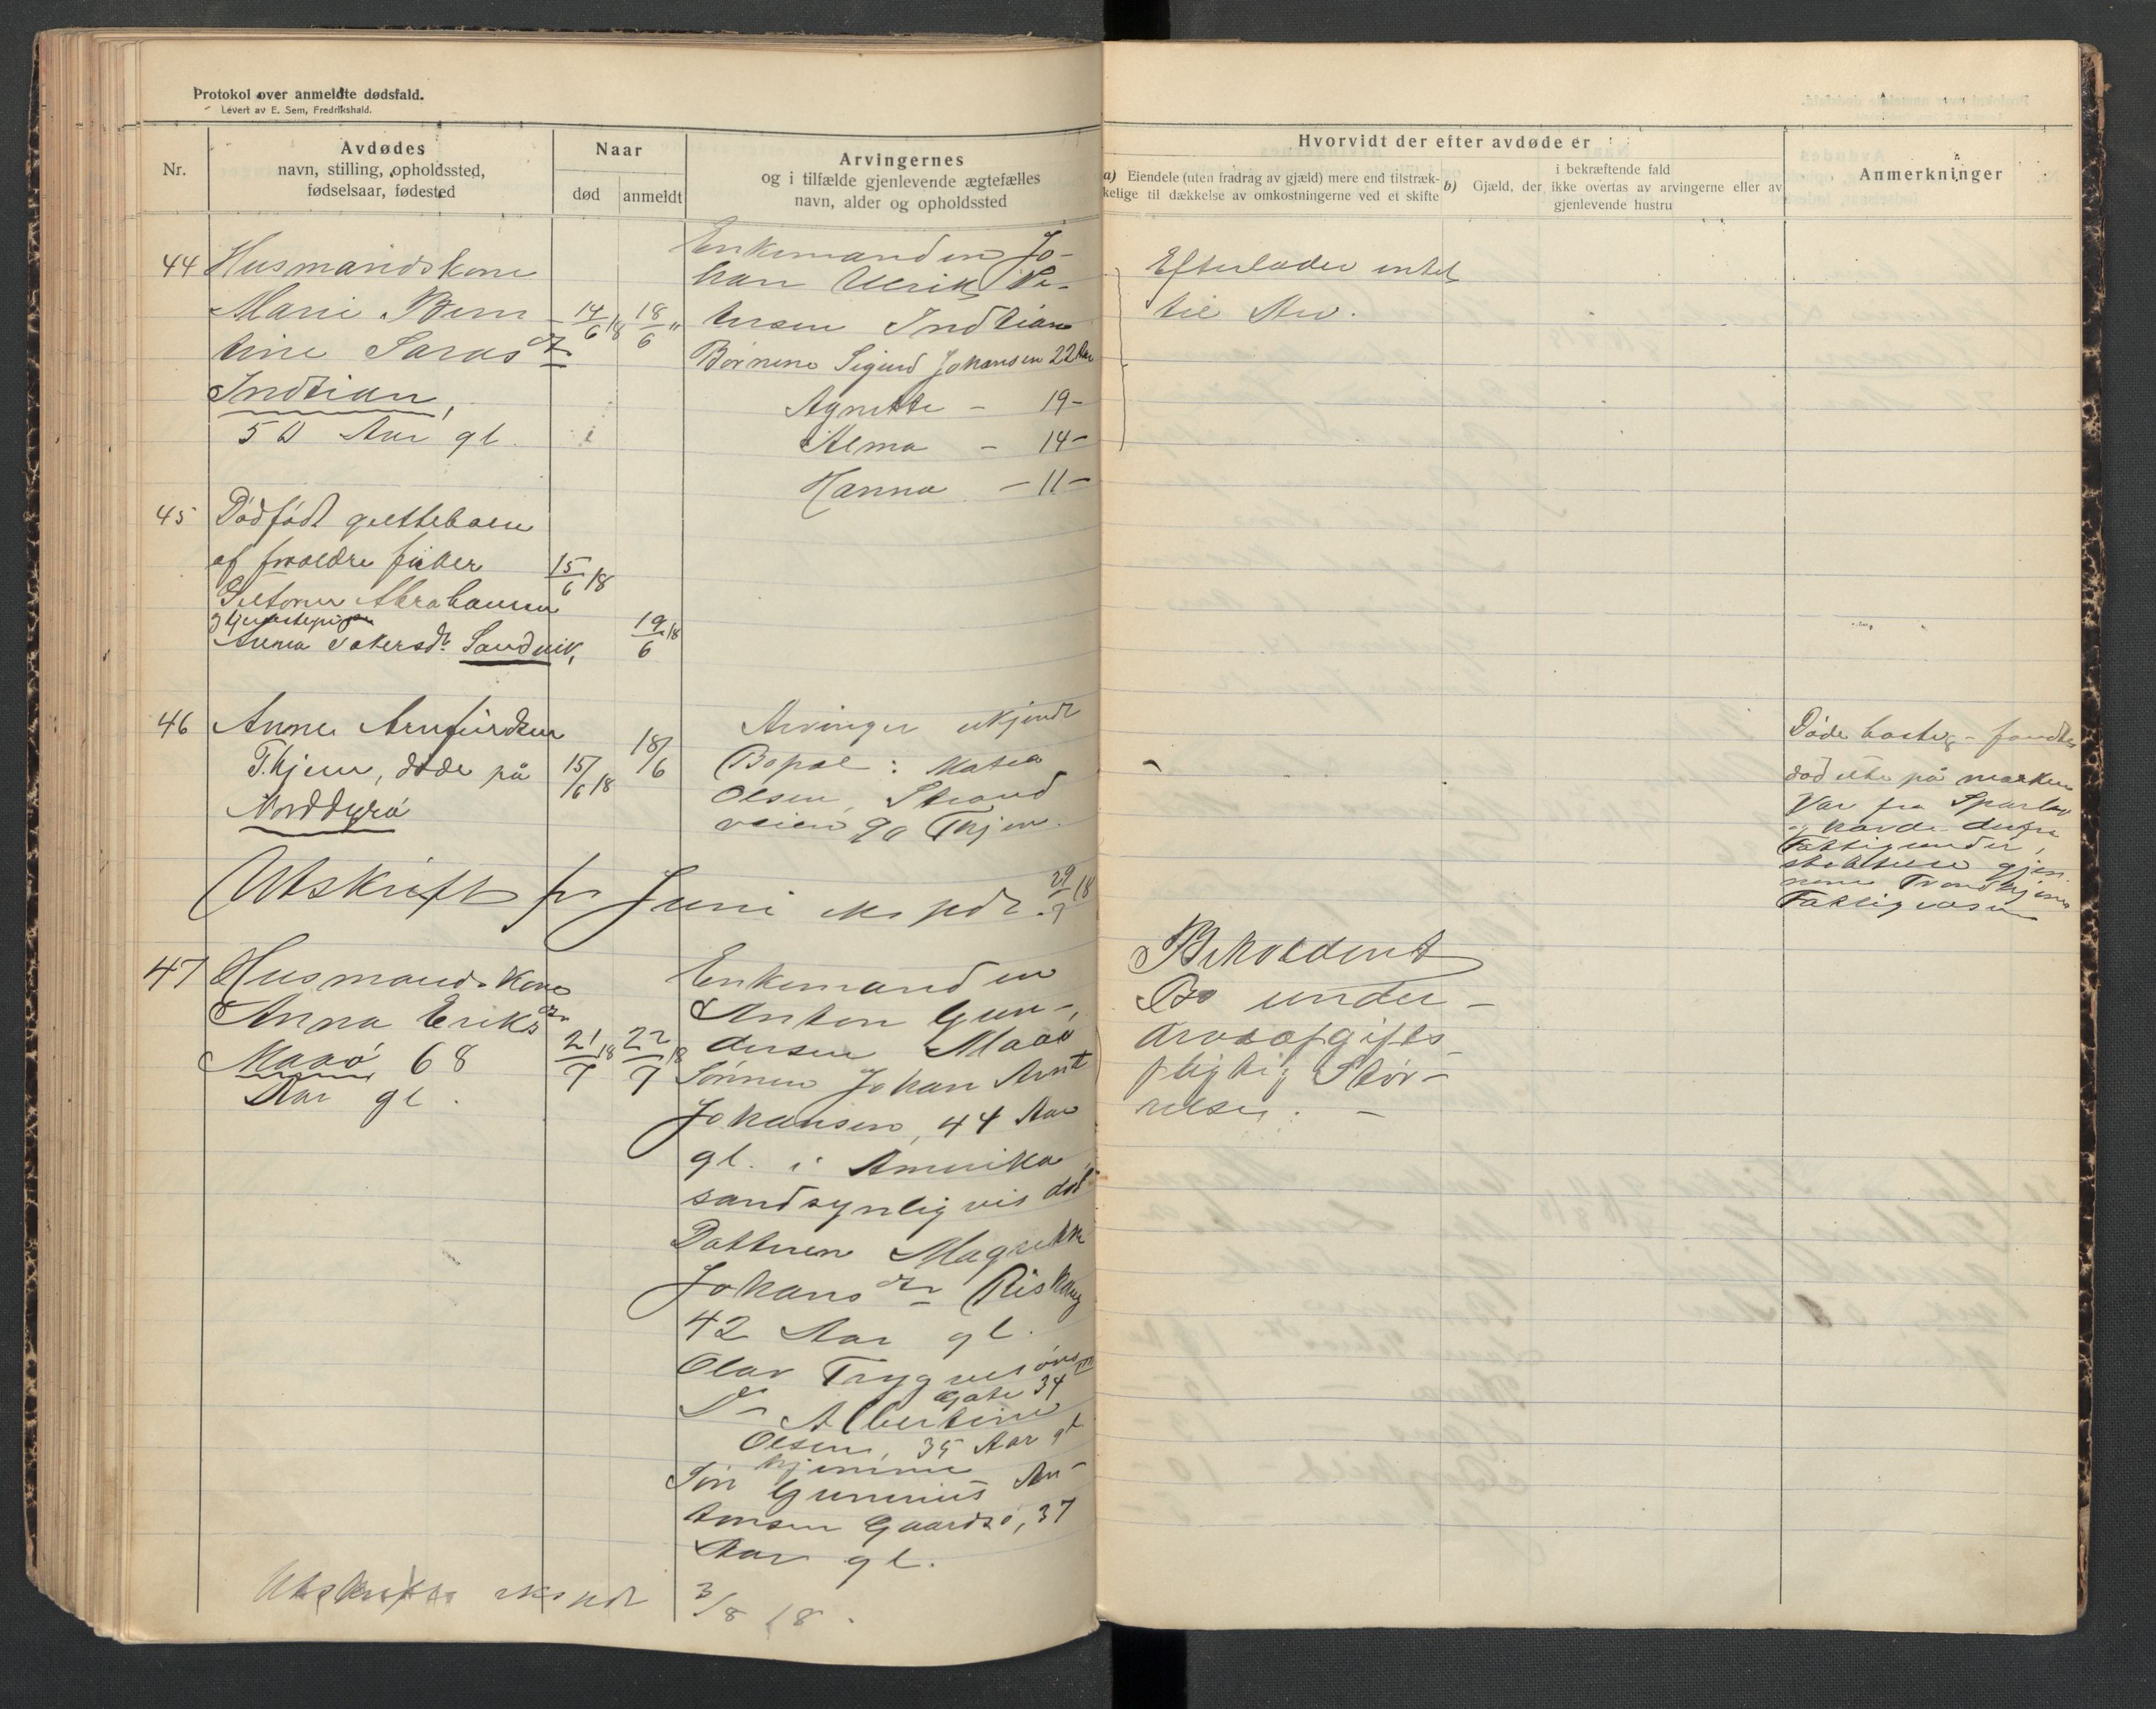 Protokol over anmeldte dødsfald.
Levert av E. Sem, Fredrikshald.
Nr.
Avdødes
navn, stilling, opholdssted,
fødselsaar, fødested
Naar
død
anmeldt
Arvingernes
og i tilfælde gjenlevende ægtefælles
navn, alder og opholdssted
Hvorvidt der efter avdøde er
a) Eiendele (uten fradrag av gjæld) mere end tilstræk-
kelige til dækkelse av omkostningerne ved et skifte
b) Gjæld, der
i bekræftende fald
ikke overtas av arvingerne eller av
gjenlevende hustru
Anmerkninger
44 Husmandskone
Marie Bern
tine Larsdtr
Indtian,
50 Aar gl.
14/6 18
18/6 "
Enkemanden Jo-
han Ulrik Pe-
tersen Indtian
Børnene Sigurd Johansen 22 Aar
Agnethe - 19 -
Alma - 14 -
Hanna - 11 -
Efterlader intet
til Arv.
45 Dødfødt guttebarn
af forældre fisker
Abrahamsen
og tjenestepigen
Anna Sandvik,
15/6 18
19/6 18
46 Anne
T.hjem, døde på
Norddyrø
15/6 18
18/6
Arvinger ukjendt
Bopæl: Matea
Olsen, Strand
veien 90 Thjem.
Døde hastig - fandtes
død ute på marken
Var fra
og havde derfra
Fattigunder,
støttelse gjen-
nem Trondhjems
Fattigvæsen
Utskrift for Juni ekspdt. 29/7 18
47 Husmandskone
Anna Eriksdtr
Maaø 68
Aar gl.
21/7 18
22/7 18
Enkemanden
Anton Gun-
dersen Maaø
Sønnen Johan Arnt
Johansen, 44 Aar
gl. i Amerika,
sandsynligvis død
Datteren Magrethe
Johansdtr Riskaug
42 Aar gl.
Olav Trygvesøns
Gate 34
Dr Albertine
Olsen, 35 Aar gl
hjemme
Søn Gunnius An-
tonsen Gaardsø, 37
Aar gl.
Beholdent
Bo under
arveafgifts
pligtig Stør-
relse. -
Utskrift ekspdt 3/8 18.